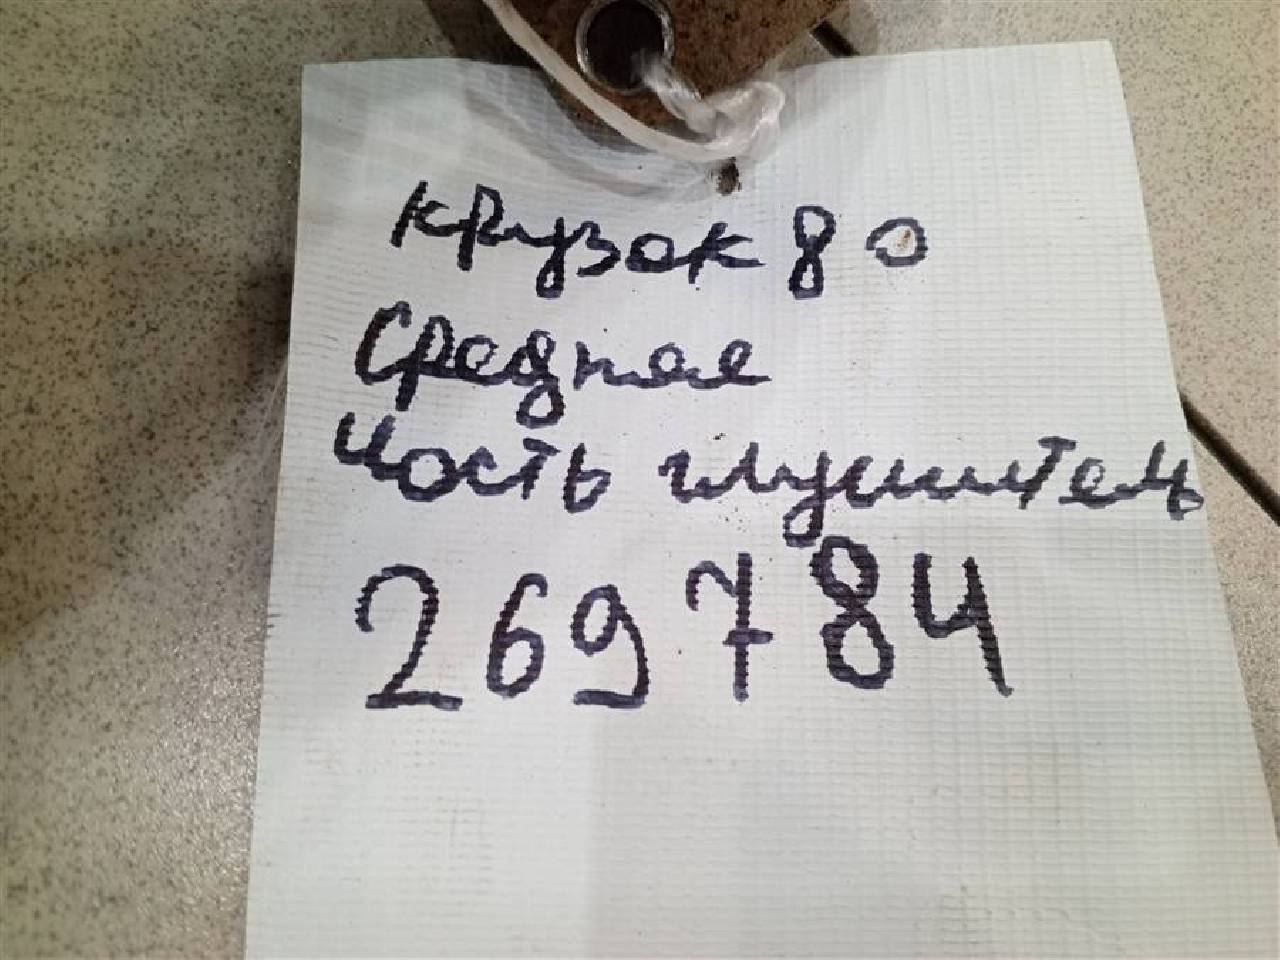 крузак 80
Средняя
часть глушитель
269784